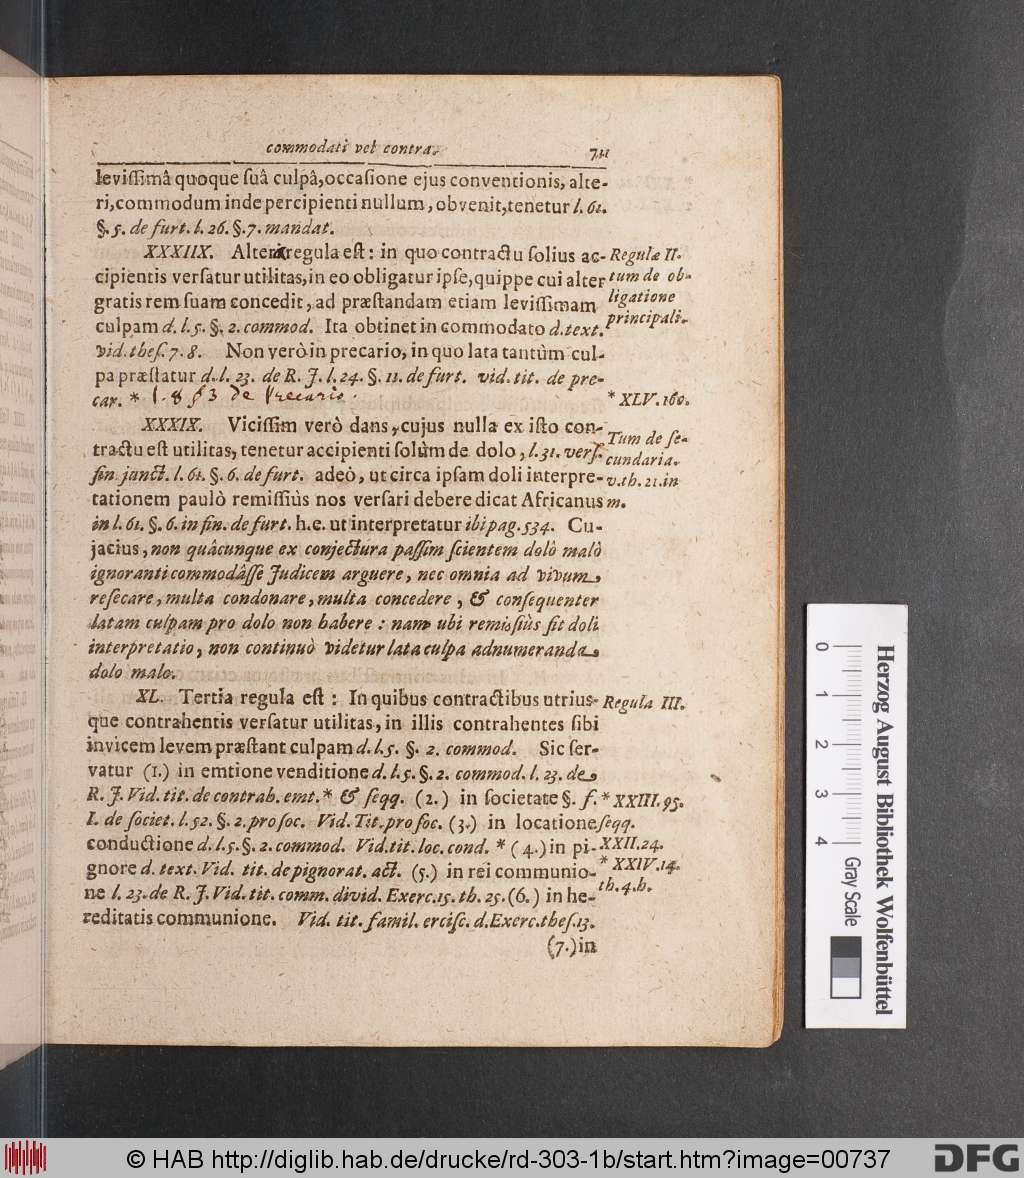 commodati vel contra. 711
levissimâ quoque suâ culpâ, occasione ejus conventionis, alte-
ri, commodum inde percipienti nullum, obvenit, tenetur l. 61.
§. 5. de furt. l. 26. §. 7. mandat.
XXXIIX. Altera regula est: in quo contractu solius ac-
cipientis versatur utilitas, in eo obligatur ipse, quippe cui alter
gratis rem suam concedit, ad præstandam etiam levissimam
culpam d. l. 5. §. 2. commod. Ita obtinet in commodato d. text.
vid. thes. 7. 8. Non verò in precario, in quo lata tantùm cul-
pa præstatur d. l. 23. de R. J. l. 24. §. 11. de furt. vid. tit. de pre-
car. * l. 8 §3 de Precario.
Regulæ II-
tum de ob-
ligatione
principali.
* XLV. 160.
XXXIX. Vicissim verò dans, cujus nulla ex isto con-
tractu est utilitas, tenetur accipienti solùm de dolo, l. 31. vers.
fin. junct. l. 61. §. 6. de furt. adeò, ut circa ipsam doli interpre-
tationem paulò remissiùs nos versari debere dicat Africanus
in l. 61. §. 6. in fin. de furt. h.e. ut interpretatur ibi pag. 534. Cu-
jacius, non quâcunque ex conjectura passim scientem dolô malô
ignoranti commodâsse Judicem arguere, nec omnia ad vivum
resecare, multa condonare, multa concedere, & consequenter
latam culpam pro dolo non habere: nam ubi remissiùs fit doli
interpretatio, non continuò videtur lata culpa adnumeranda
dolo malo.
Tum de se-
cundaria.
v. th. 21. in
m.
XL. Tertia regula est: In quibus contractibus utrius-
que contrahentis versatur utilitas, in illis contrahentes sibi
invicem levem præstant culpam d. l. 5. §. 2. commod. Sic ser-
vatur (1.) in emtione venditione d. l. 5. §. 2. commod. l. 23. de
R. J. Vid. tit. de contrah. emt. * & seqq. (2.) in societate §. f.
I. de societ. l. 52. §. 2. pro soc. Vid. Tit. pro soc. (3.) in locatione
conductione d. l. 5. §. 2. commod. Vid. tit. loc. cond. * (4.) in pi-
gnore d. text. Vid. tit. de pignorat. act. (5.) in rei communio-
ne l. 23. de R. J. Vid. tit. comm. divid. Exerc. 15. th. 25. (6.) in he-
reditatis communione. Vid. tit. famil. ercisc. d. Exerc. thes. 13.
(7.) in
Regula III.
* XXIII. 95.
seqq.
XXII. 24.
* XXIV. 14.
th. 4. h.
0 1 2 3 4
Gray Scale
Herzog August Bibliothek Wolfenbüttel
© HAB http://diglib.hab.de/drucke/rd-303-1b/start.htm?image=00737
DFG